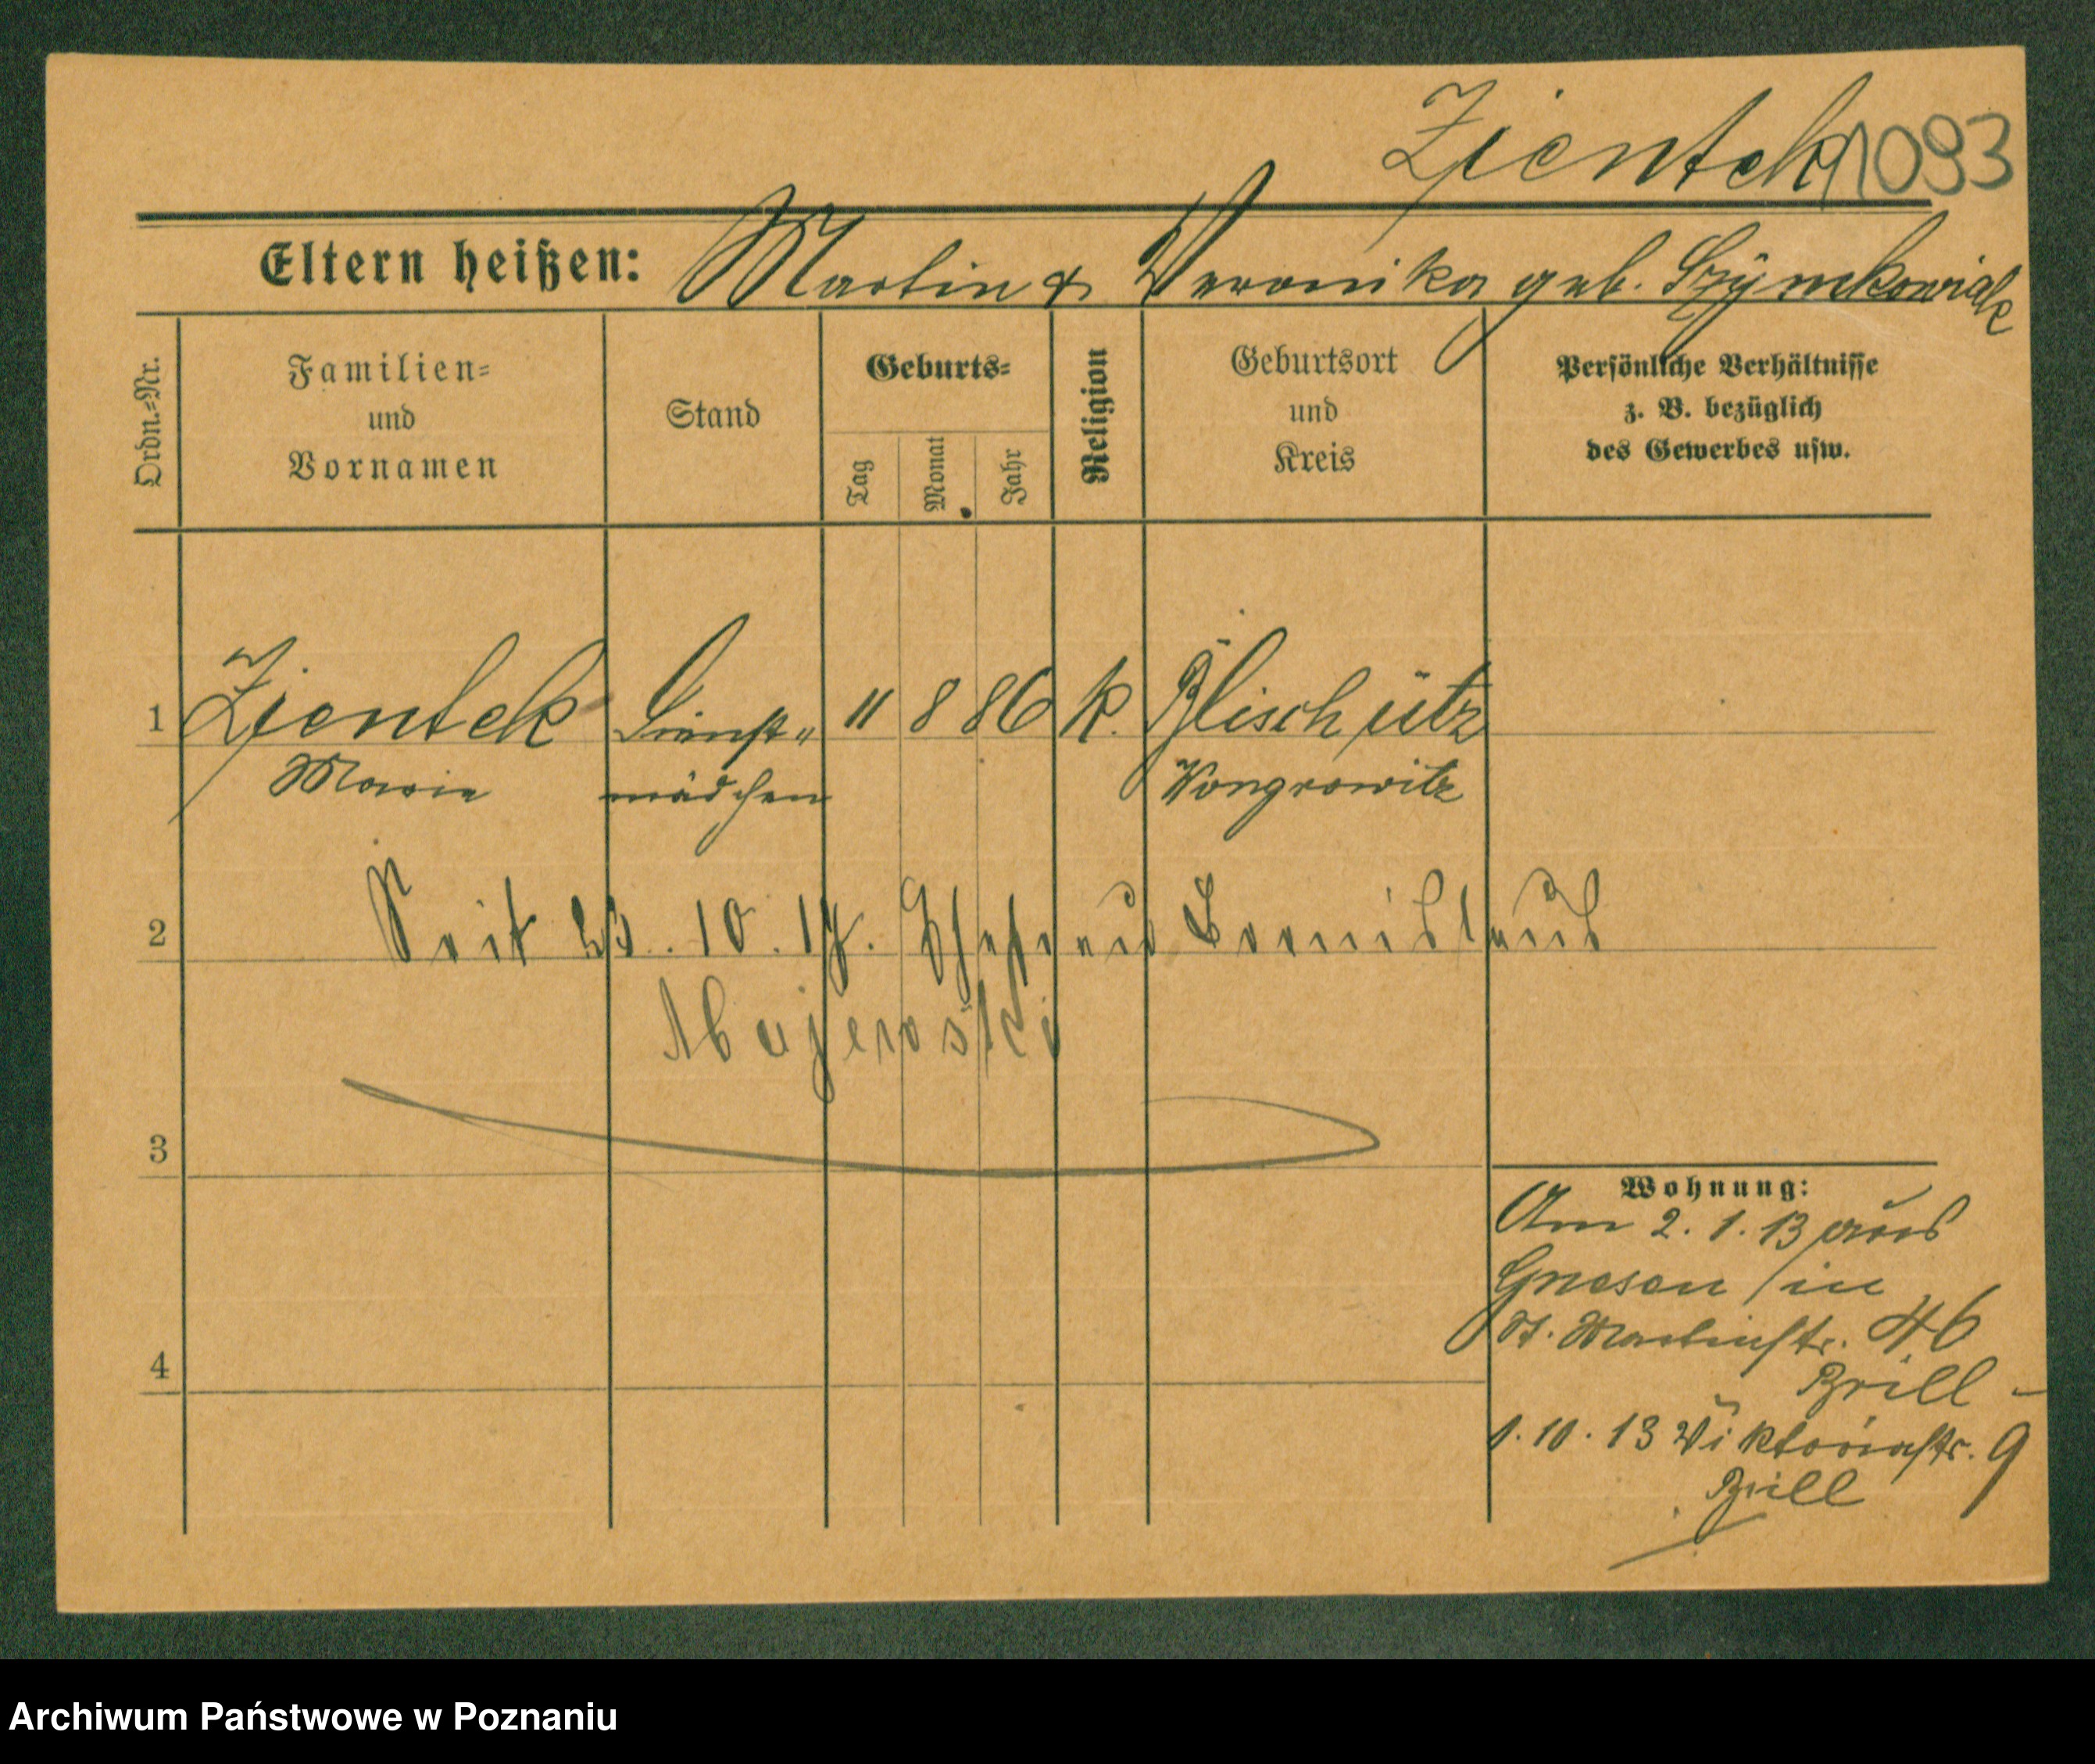 Zientek 1093
Eltern heißen: Martin & Veronika geb. Szymkowiak
Ordn.=Nr.
Familien=
und
Vornamen
Stand
Geburts=
Tag
Monat
Jahr
Religion
Geburtsort
und
Kreis
Persönliche Verhältnisse
z. B. bezüglich
des Gewerbes usw.
1 Zientek Dienst= 11 8 86 k. Blischütz
Marie mädchen Wongrowitz
2 Seit 10. Ehefrau Bronislaus
Majewski
3
4
Wohnung:
Am 2. 1. 13 aus
Gnesen in
St. Martinstr. 46
Brill -
1. 10. 13 Viktoriastr. 9
Brill
Archiwum Państwowe w Poznaniu